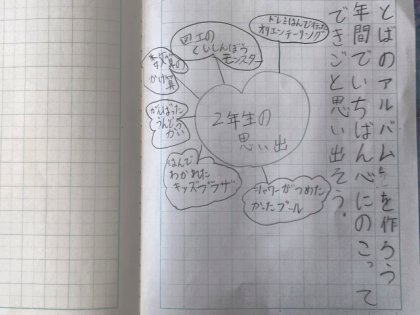 とばのアルバム」を作ろう
年間でいちばん心にのこって
できごと思い出そう。
ドレミはんで行った
オリエンテーリング
図工の
くいしんぼう
モンスター
かけ算
がんばった
うんどう
かい
はんで
わかれた
キッズプラザ
シャワーがつめた
かったプール
2年生の
思い出